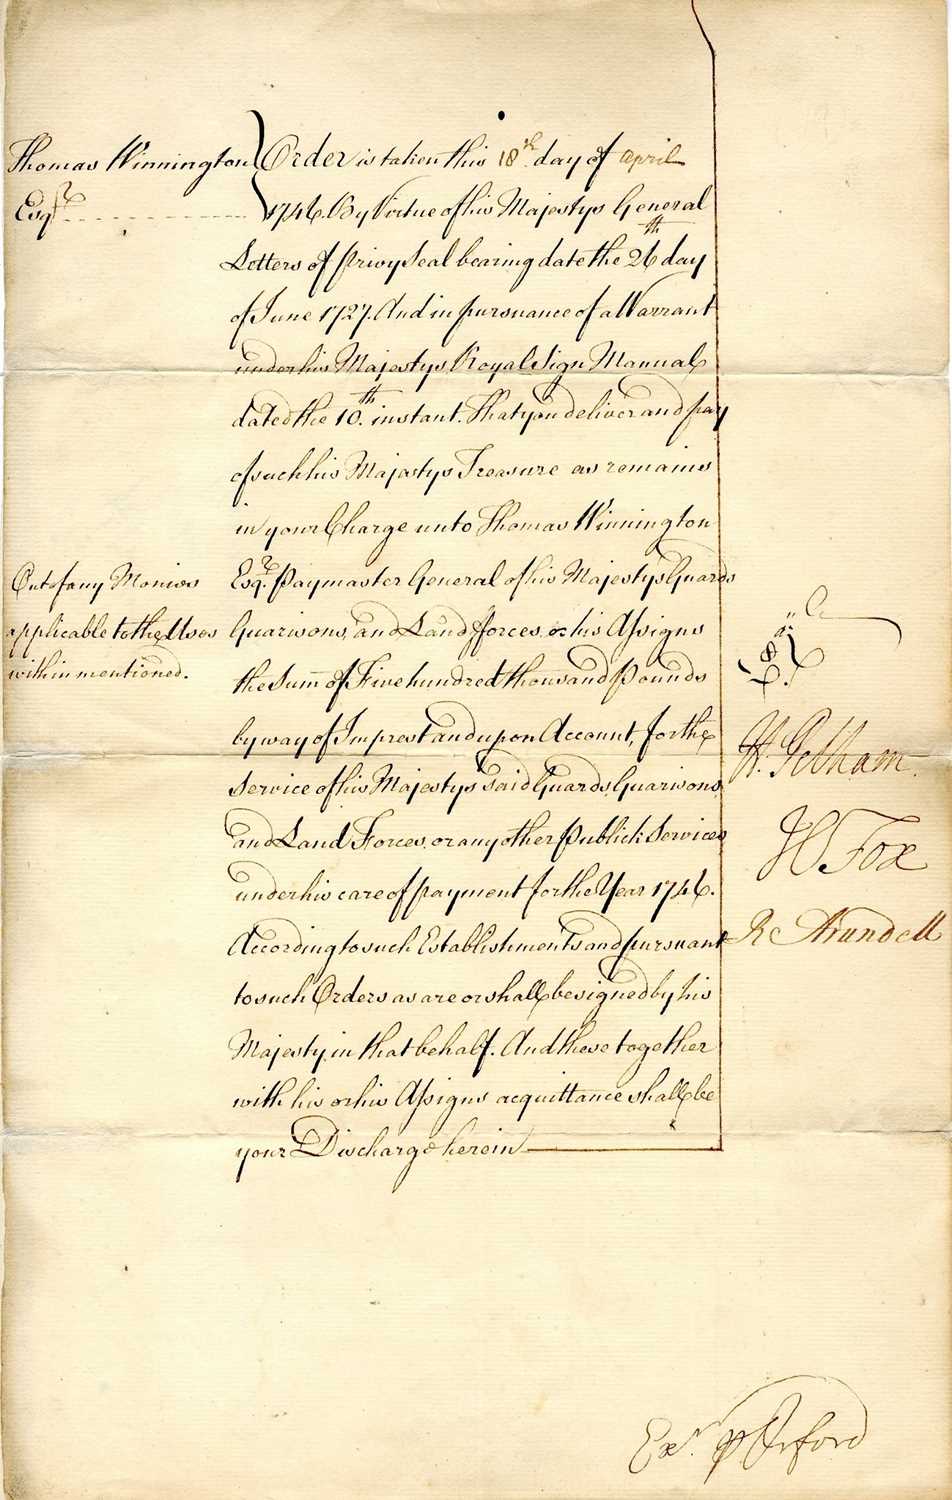 Thomas Winnington
Esqr
Order is taken this 18th day of April
1746. By Virtue of his Majestys General
Letters of privy Seal bearing date the 26th day
of June 1727. And in pursuance of a Warrant
under his Majestys Royal Sign Manual
dated the 10th instant. That you deliver and pay
of such his Majestys Treasure as remains
in your Charge unto Thomas Winnington
Esqr. Paymaster General of his Majestys Guards
Guarisons, and Land fforces, or his Assigns
the Sum of Five hundred thousand Pounds
by way of Imprest and upon Account, for the
Service of his Majestys said Guards, Guarisons,
and Land Forces, or any other Publick Services
under his care of payment for the Year 1746.
According to such Establishments and pursuant
to such Orders as are or shall be signed by his
Majesty in that behalf. And these together
with his or his Assigns acquittance shall be
your Discharge herein
Out of any Monies
applicable to the Uses
within mentioned.
H. Pelham.
H Fox
R Arundell
Exr. p Orford